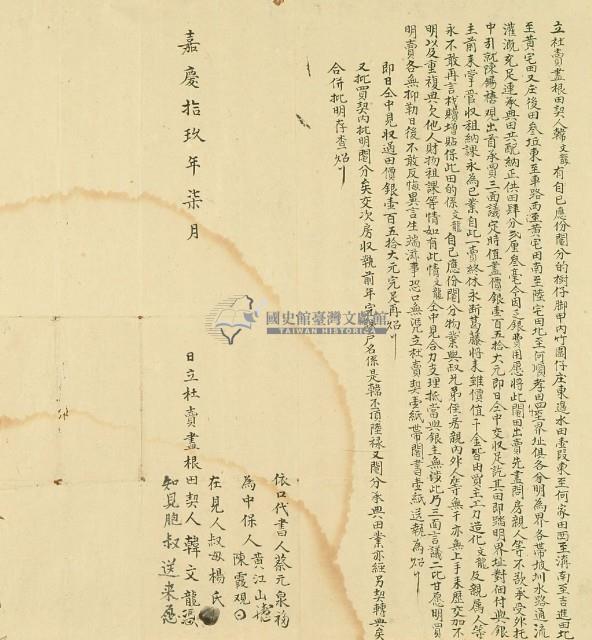 立杜賣盡根田契人韓文龍有自己應份鬮分的樹仔脚甲內竹圍仔庄東邊水田壹段東至何家田西至溝南至吉進田北
至黃宅田又庄後田叁坵東至車路西至黃宅田南至陸宅田北至何順孝田四至界址俱各分明為界各帶坡圳水路通流
灌溉充足連承典田共配納正供田肆分弍厘叁毫今因乏銀費用愿將此鬮田出賣先盡問房親人等不欲承受外托
中引就陳錫禧觀出首承買三面議定時值盡價銀壹百五拾大元即日仝中交收足訖其田即踏明界址對佃付與銀
主前來掌管收租納課永為己業自此一賣終休永斷葛藤將來雖價值千金皆由買主工力造化文龍及親属人等
永不敢再言找贖增貼保此田的係文龍自己應份鬮分物業與叔兄弟侄房親內外人等無干亦無上手來歷交加不
明以及重複典欠他人財物租課等情如有此情文龍仝中見合力支理抵當與銀主無涉此乃三面言議二比甘愿明買
明賣各無抑勒日後不敢反悔異言生端滋事恐口無凴立杜賣契壹紙帶鬮書壹紙送執為炤
即日仝中見收過田價銀壹百五拾大元完足再炤
又批買契內批明鬮分矣交次房收執前年完課戶名係是韓不頂陸禄又鬮分承典田業亦經另契轉典矣
合併批明存查炤
國史館臺灣文獻館
TAIWAN HISTORICA
嘉慶拾玖年柒月
日立杜賣盡根田契人韓文龍
依口代書人蔡元泉
為中保人黃江山
陳霞觀
在見人叔母楊氏
知見胞叔送來